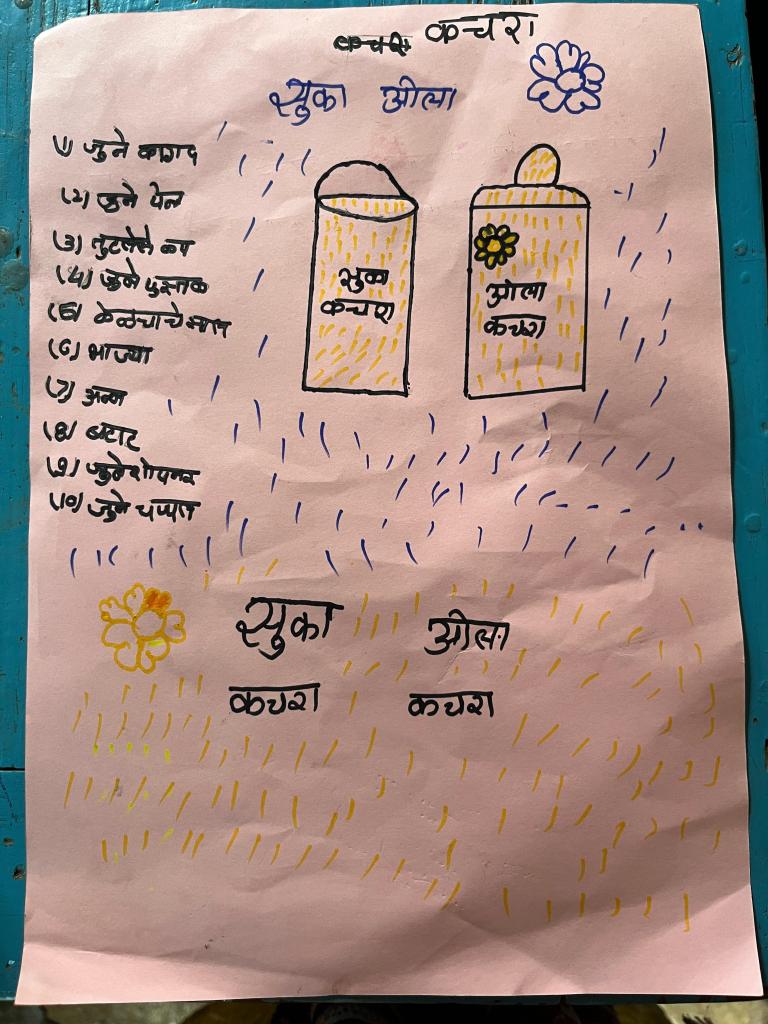 कचरा कचरा
सुका ओला
(1) जुने कागद
(2) जुने पेन
(3) तुटलेले कप
(4) जुने पुस्तक
(5) केळ्याचे साल
(6) भाज्या
(7) अन्न
(8) बटाट
(9) जुने शोपनर
(10) जुने चप्पल
सुका कचरा
ओला कचरा
सुका ओला
कचरा कचरा